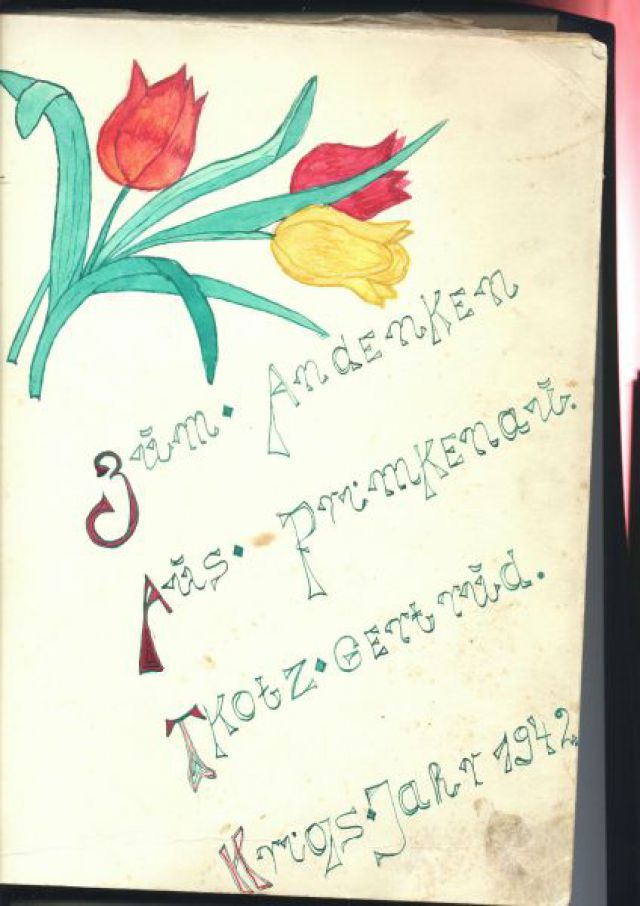 Zŭm. Andenken
Aŭs. Primkenaŭ.
Tkotz. Gertrŭd.
Krgs. Jahr 1942